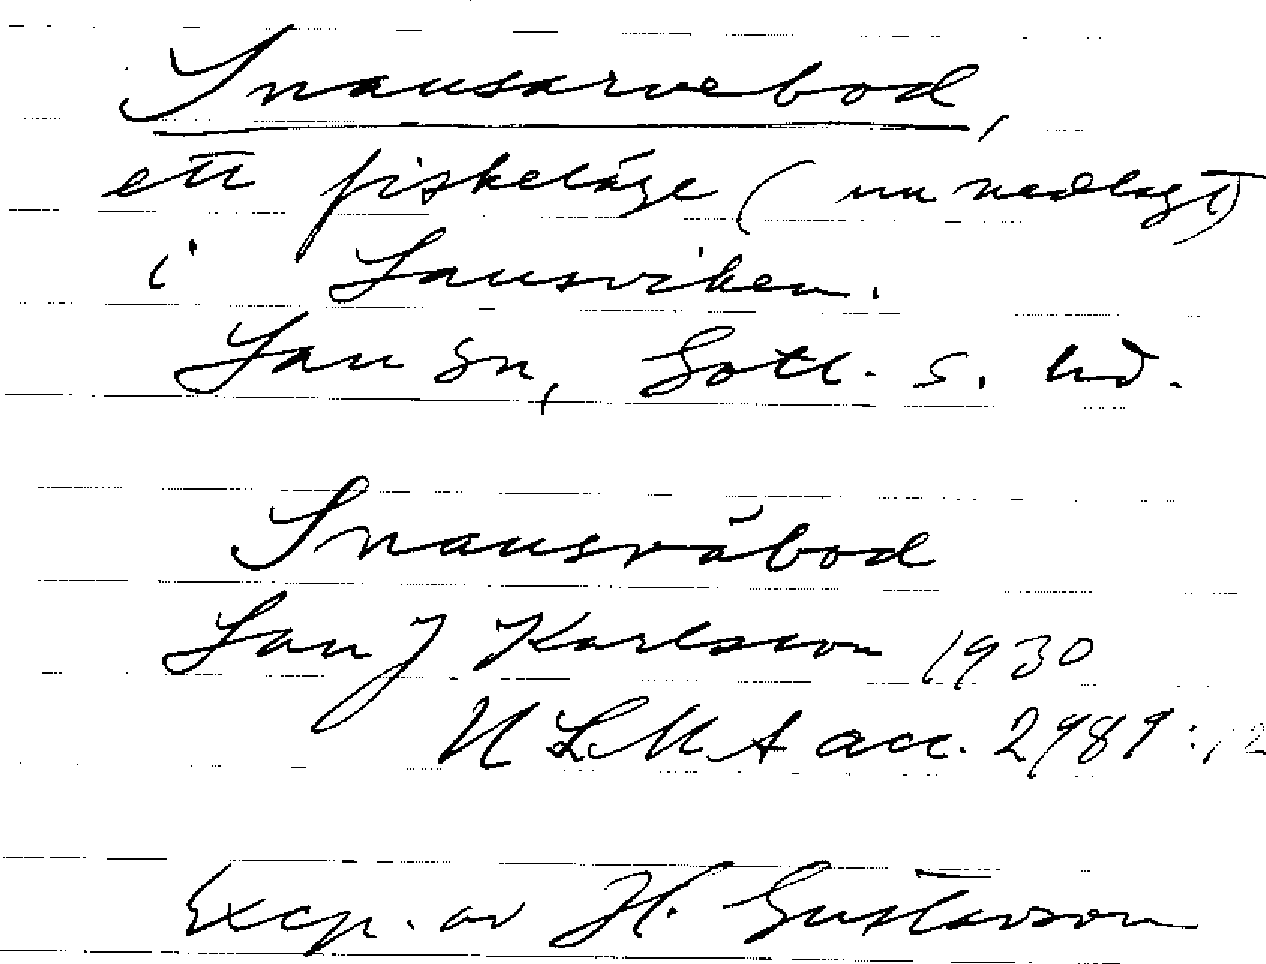 Snausarvebod,
ett fiskeläge (nu nedlagt)
i Lausviken.
Lau sn, Gotl. s. hd.
Snausvåbod
Lau J Karlsson 1930
ULMA acc. 2989:12
Excp. av H. Gustavson